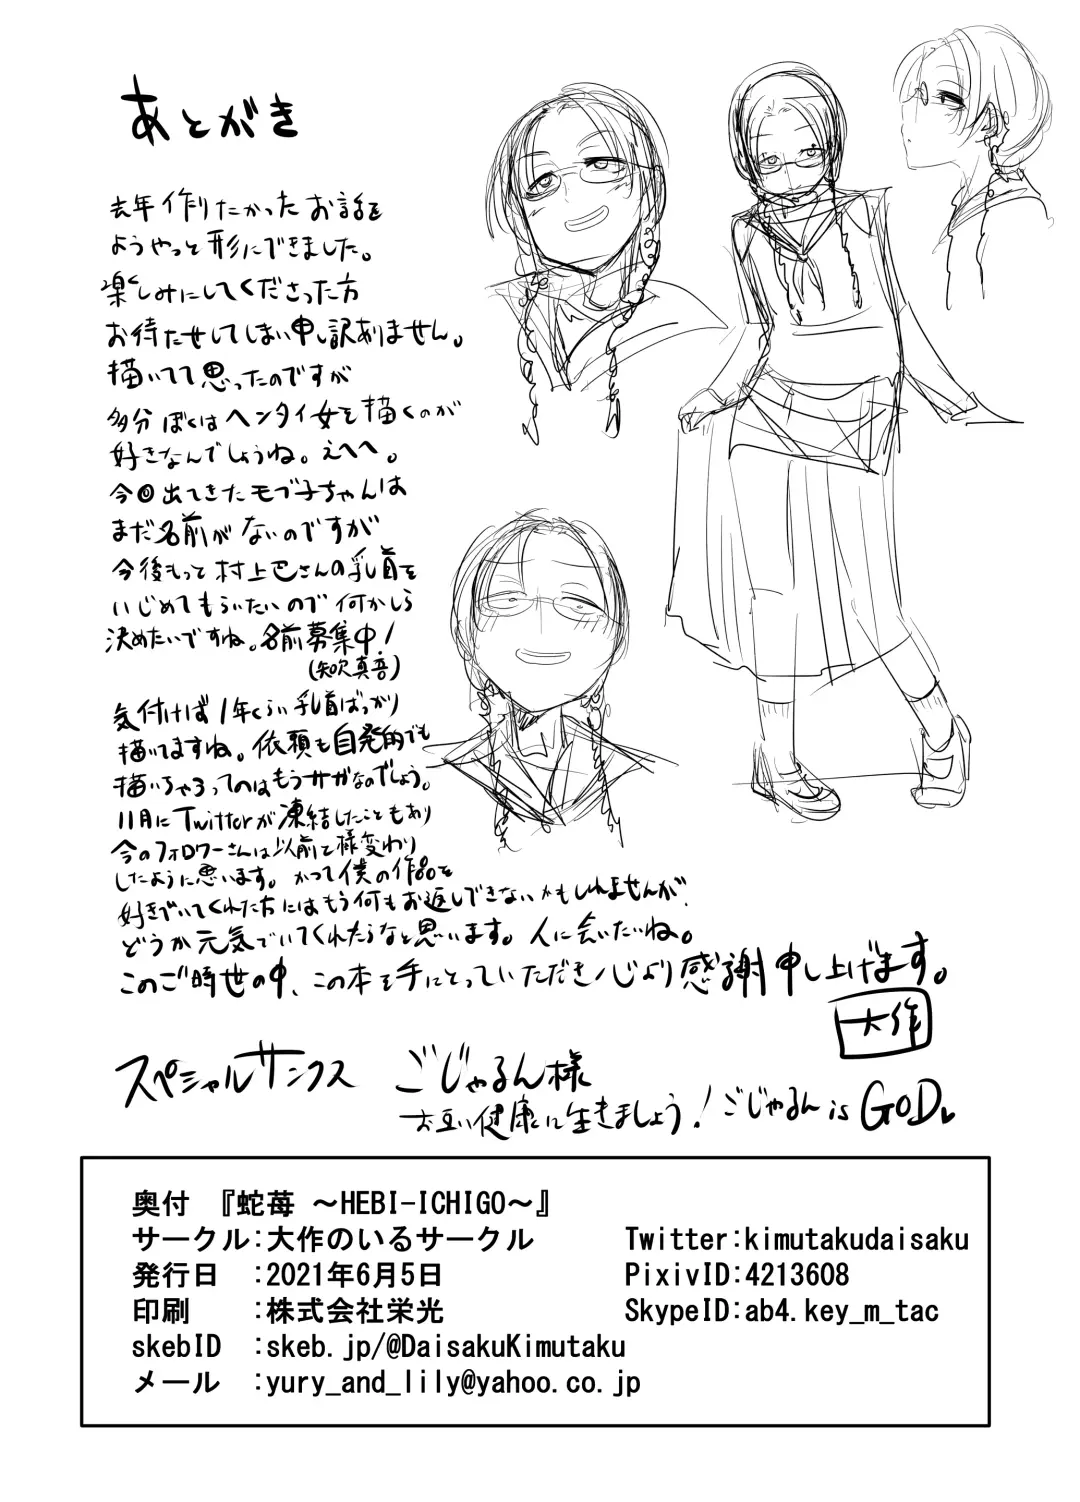 あとがき
去年作りたかったお話を
ようやっと形にできました。
楽しみにしてくださった方
お待たせしてしまい申し訳ありません。
描いてて思ったのですが
多分ぼくはヘンタイ女を描くのが
好きなんでしょうね。えへへ。
今回出てきたモブ子ちゃんは
まだ名前がないのですが
今後もっと村上巴さんの乳首を
いじめてもらいたいので何かしら
決めたいですね。名前募集中!
(矢吹真吾)
気付けば1年くらい乳首ばっかり
描いてますね。依頼も自発的でも
描いちゃろってのはもうサガなのでしょう。
11月にTwitterが凍結したこともあり
今のフォロワーさんは以前と様変わり
したように思います。かつて僕の作品を
好きでいてくれた方にはもう何もお返しできないかもしれませんが、
どうか元気でいてくれたらなと思います。人に会いたいね。
このご時世の中、この本を手にとっていただき心より感謝申し上げます。
大作
スペシャルサンクス ごじゃるん様
お互い健康に生きましょう!ごじゃるん is GOD♥
奥付 『蛇苺 ～HEBI-ICHIGO～』
サークル:大作のいるサークル Twitter:kimutakudaisaku
発行日 :2021年6月5日 PixivID:4213608
印刷 :株式会社栄光 SkypeID:ab4.key_m_tac
skebID :skeb.jp/@DaisakuKimutaku
メール :yury_and_lily@yahoo.co.jp